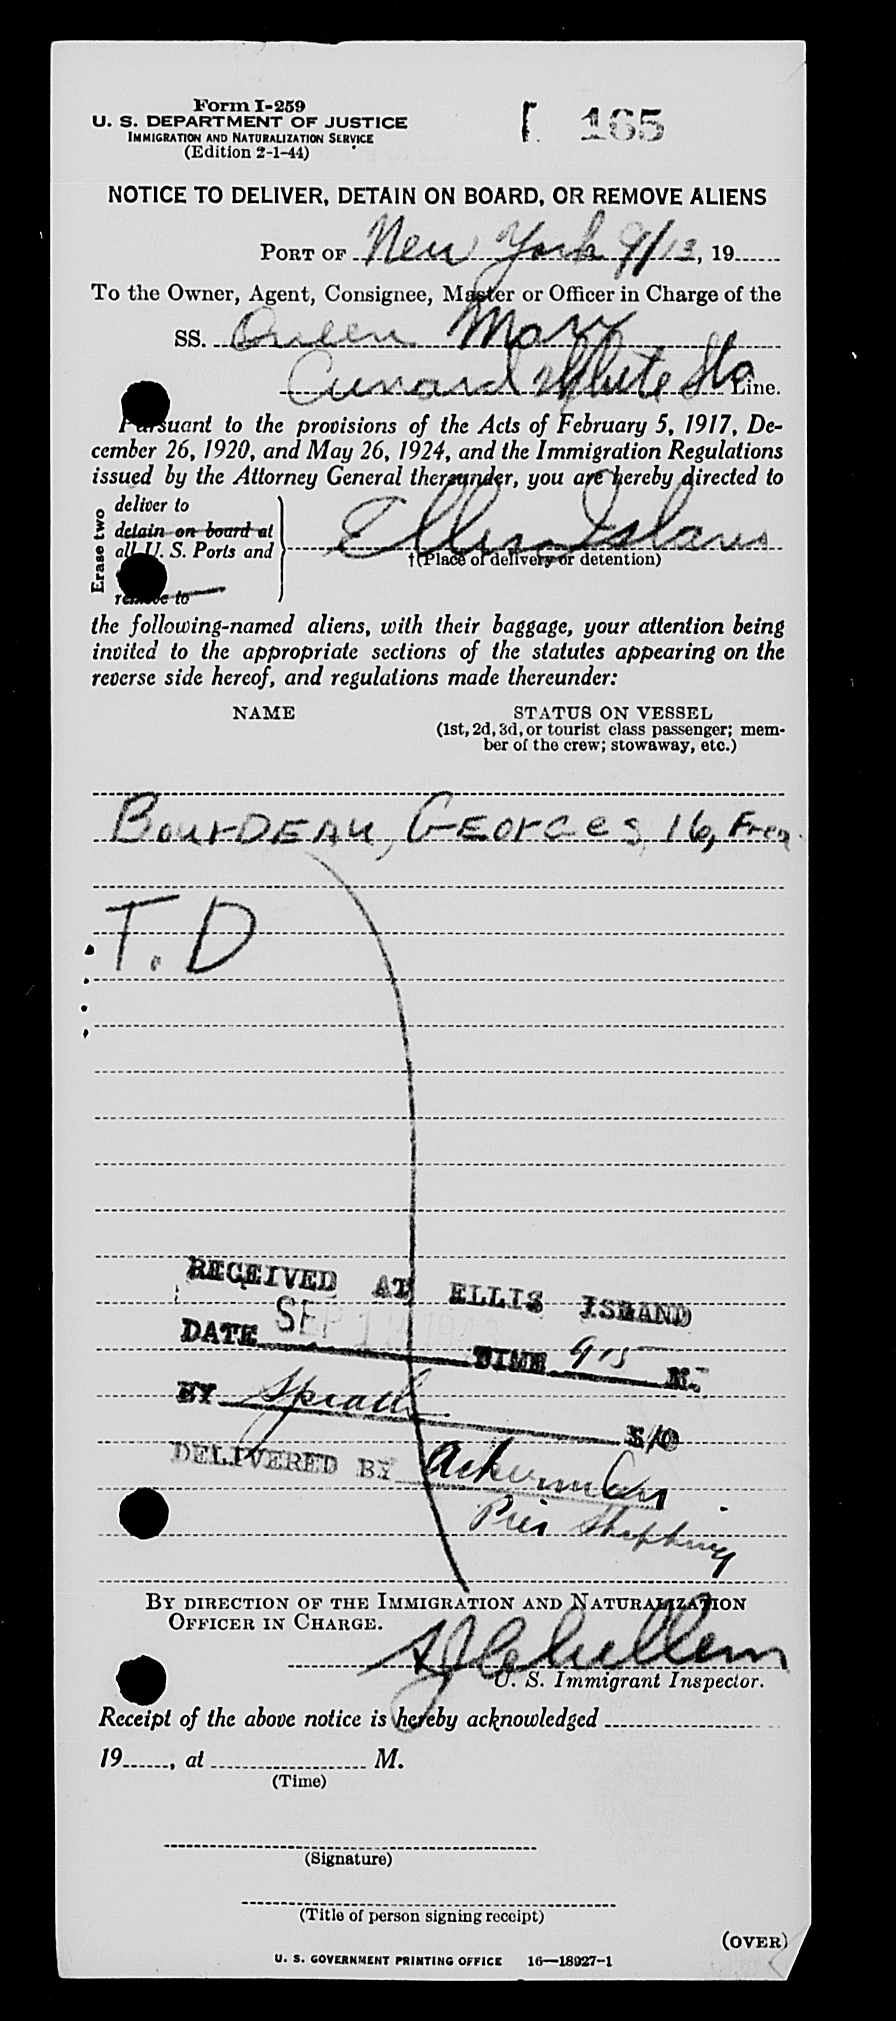 Form I-259
U. S. DEPARTMENT OF JUSTICE
IMMIGRATION AND NATURALIZATION SERVICE
(Edition 2-1-44)
165
NOTICE TO DELIVER, DETAIN ON BOARD, OR REMOVE ALIENS
PORT OF New York 9/13, 19
To the Owner, Agent, Consignee, Master or Officer in Charge of the
SS. Queen Mary
Cunard White Sta Line.
Pursuant to the provisions of the Acts of February 5, 1917, De-
cember 26, 1920, and May 26, 1924, and the Immigration Regulations
issued by the Attorney General thereunder, you are hereby directed to
Erase two
deliver to
detain on board at
all U. S. Ports and
remove to
Ellis Island
†(Place of delivery or detention)
the following-named aliens, with their baggage, your attention being
invited to the appropriate sections of the statutes appearing on the
reverse side hereof, and regulations made thereunder:
NAME STATUS ON VESSEL
(1st, 2d, 3d, or tourist class passenger; mem-
ber of the crew; stowaway, etc.)
Bourdeau, Georges, 16, Fren
T.D
RECEIVED AT ELLIS ISLAND
DATE SEP 13 TIME 915 M.
BY S/O
DELIVERED BY Ackerman
Pier
BY DIRECTION OF THE IMMIGRATION AND NATURALIZATION
OFFICER IN CHARGE.
U. S. Immigrant Inspector.
Receipt of the above notice is hereby acknowledged
19, at M.
(Time)
(Signature)
(Title of person signing receipt)
(OVER)
U. S. GOVERNMENT PRINTING OFFICE 16—18927-1